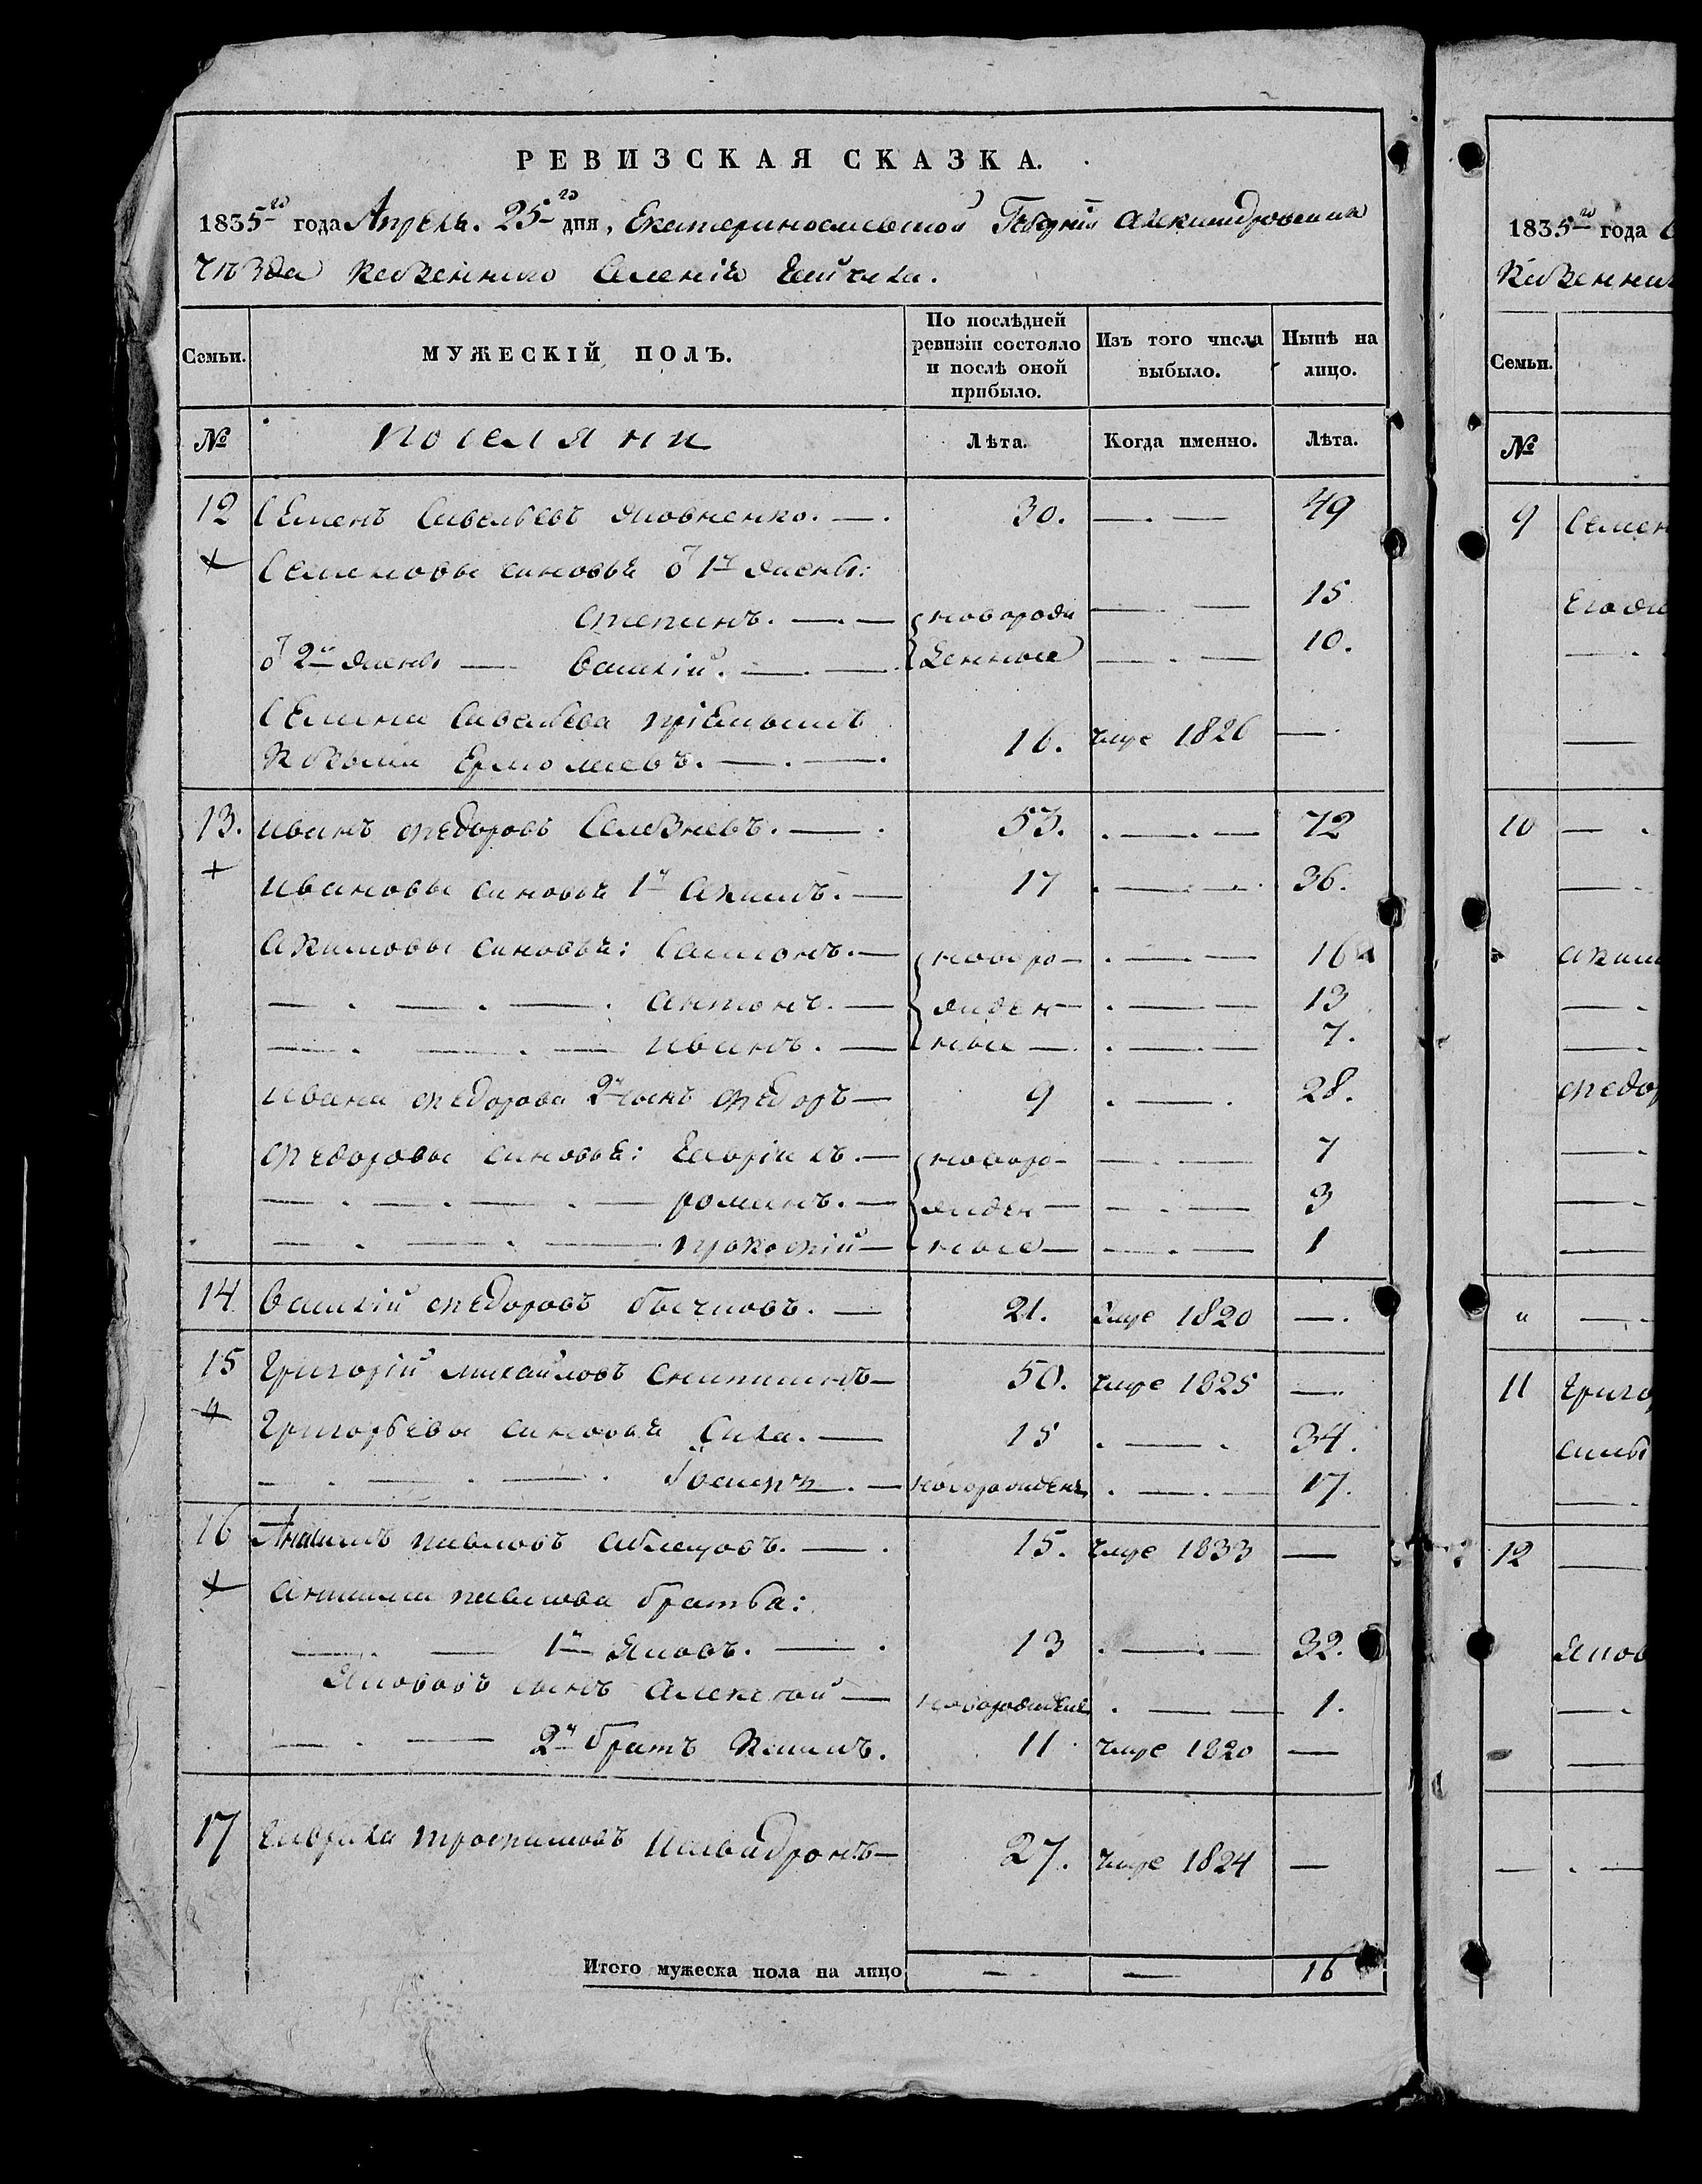 РЕВИЗСКАЯ СКАЗКА.
1835го года Апреля. 25го дня, Екатеринославской Губернии Александровского
уѣзда казенного Селения Гайчула.
Семьи. МУЖЕСКІЙ ПОЛЪ. По послѣдней ревизіи состояло и послѣ оной прибыло. Изъ того числа выбыло. Нынѣ на лицо.
№ поселяни Лѣта. Когда именно. Лѣта.
12 Семенъ Савельевъ 30. — 49
Семеновы синовья от 1й жены:
степанъ. — новорож — 15
от 2й жены — василій. — денные — 10.
Семена Савельева пріемышъ
Козьма Ермолаевъ. — 16. умре 1826 —
13. иванъ федоровъ Селезневъ. — 53. — 72
ивановы синовья 1й акимъ. — 17 — 36.
акимовы синовья: Самсонъ. — новоро — 16
— антонъ. — жден — 13
— иванъ. — ные — 7.
ивана федорова 2й сынъ федоръ — 9 — 28.
федоровы синовья: Гаврiилъ. — новоро — 7
— романъ. — жден — 3
— прокофій — ные — 1
14. василій федоровъ бычковъ. — 21. умре 1820 —
15 григорій михайловъ — 50. умре 1825 —
григорьевы синовья Сила. — 15 — 34.
— Іосипъ. — новорожденъ — 17.
16 Анисимъ павловъ — 15. умре 1833 —
анисима павлова братья:
— 1й яковъ. — 13 — 32.
яковавъ сынъ алексей — новорожденъ — 1.
— 2й братъ 11 умре 1820 —
17 гаврила трофимовъ — 27. умре 1824 —
Итого мужеска пола на лицо — — 16
1835го года
казенна
Семьи.
№
9 Семен
его же
10 —
аким
федор
" —
11 григо
силы
12 —
яков